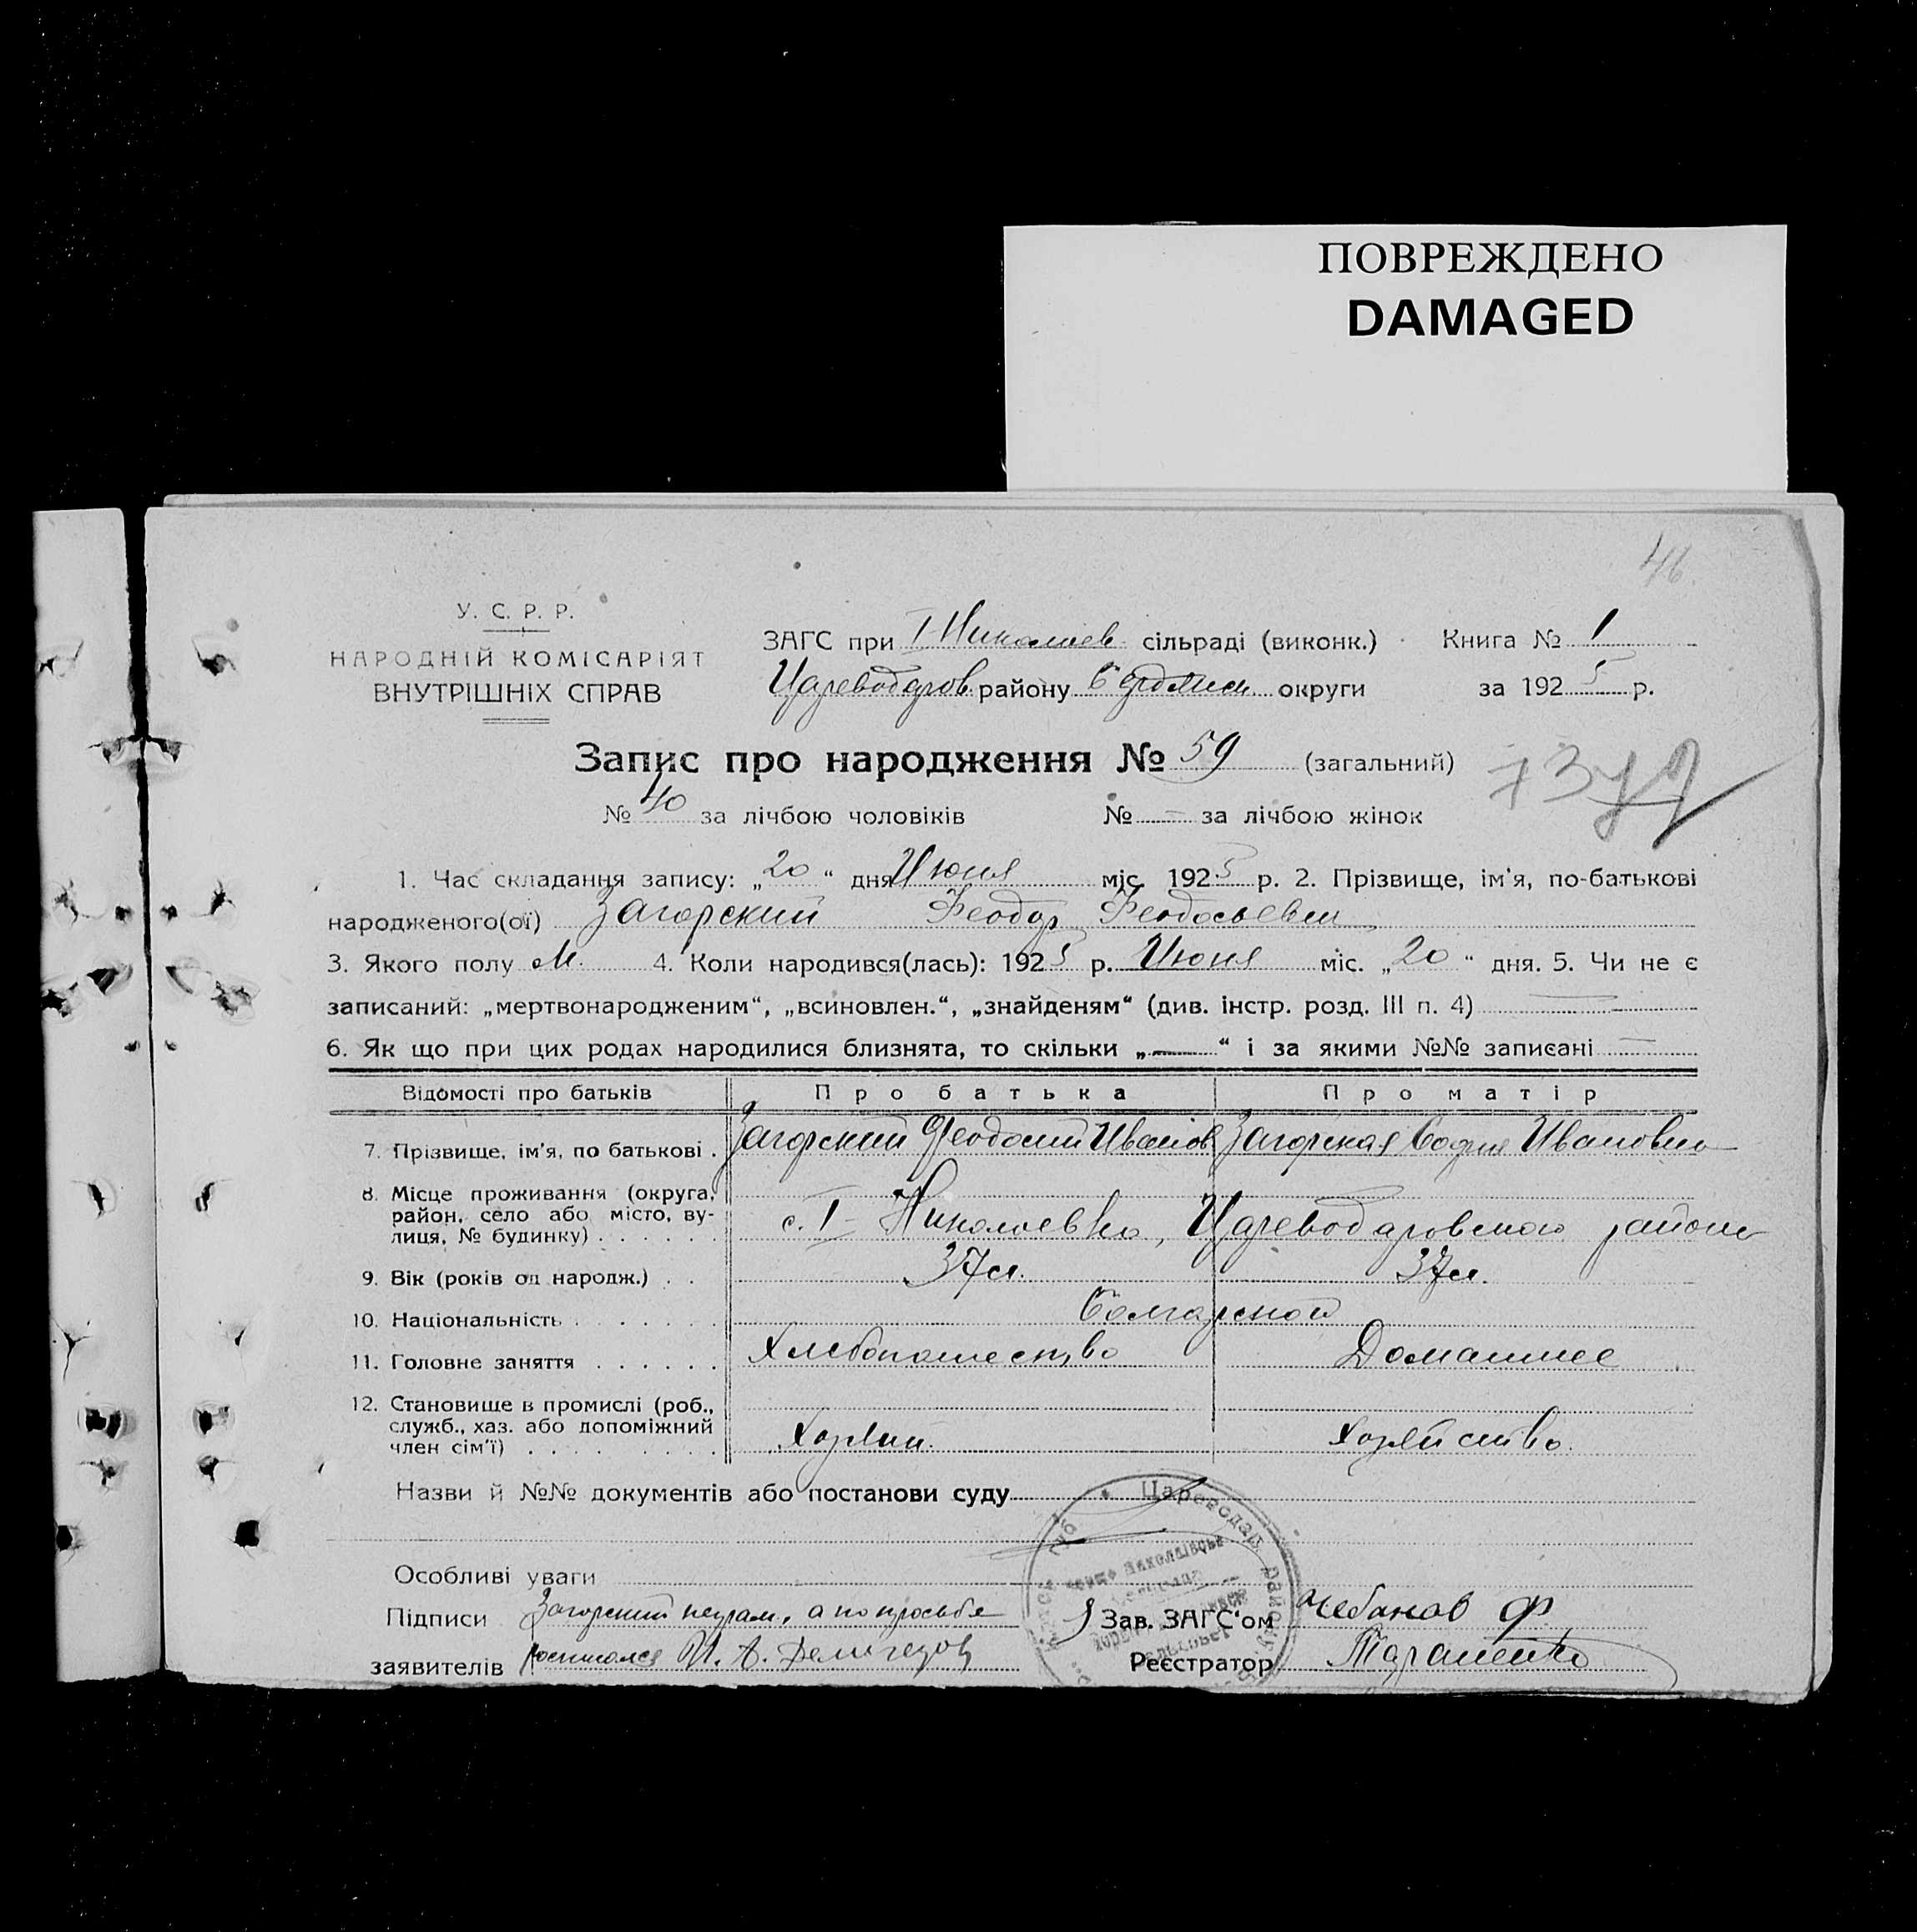 ПОВРЕЖДЕНО
DAMAGED
46.
У. С. Р. Р.
НАРОДНІЙ КОМІСАРІЯТ
ВНУТРІШНІХ СПРАВ
ЗАГС при І Николаев. сільраді (виконк.) Книга № 1
Цареводаров. району округи за 1925 р.
Запис про народження № 59 (загальний)
№ 40 за лічбою чоловіків № — за лічбою жінок
1. Час складання запису: „20“ дня Июня міс. 1925 р. 2. Прізвище, ім'я, по-батькові
народженого(ої) Загорский Феодор Феодосьевич
3. Якого полу м. 4. Коли народився(лась): 1925 р. Июня міс. „20“ дня. 5. Чи не є
записаний: „мертвонародженим“, „всиновлен.“, „знайденям“ (див. інстр. розд. III п. 4) —
6. Як що при цих родах народилися близнята, то скільки „—“ і за якими №№ записані —
Відомості про батьків Про батька Про матір
7. Прізвище, ім'я, по батькові . Загорский Феодосий Иванов Загорская София Ивановна
8. Місце проживання (округа,
район, село або місто, ву-
лиця, № будинку) . . . . . . с. І Николаевка, Цареводаровского района
9. Вік (років од народж.) . . 37 л. 37 л.
10. Національність . . . . . . . Болгарской
11. Головне заняття . . . . . . Хлебопашество Домашнее
12. Становище в промислі (роб.,
служб., хаз. або допоміжний
член сім'ї) . . . . . . . . . Хозяин. хозяйство.
Назви й №№ документів або постанови суду
Цареводар. району
Особливі уваги
Підписи Загорский неграм., а по просьбе Зав. ЗАГС'ом Чебанов Ф.
заявителів росписался И. Реєстратор